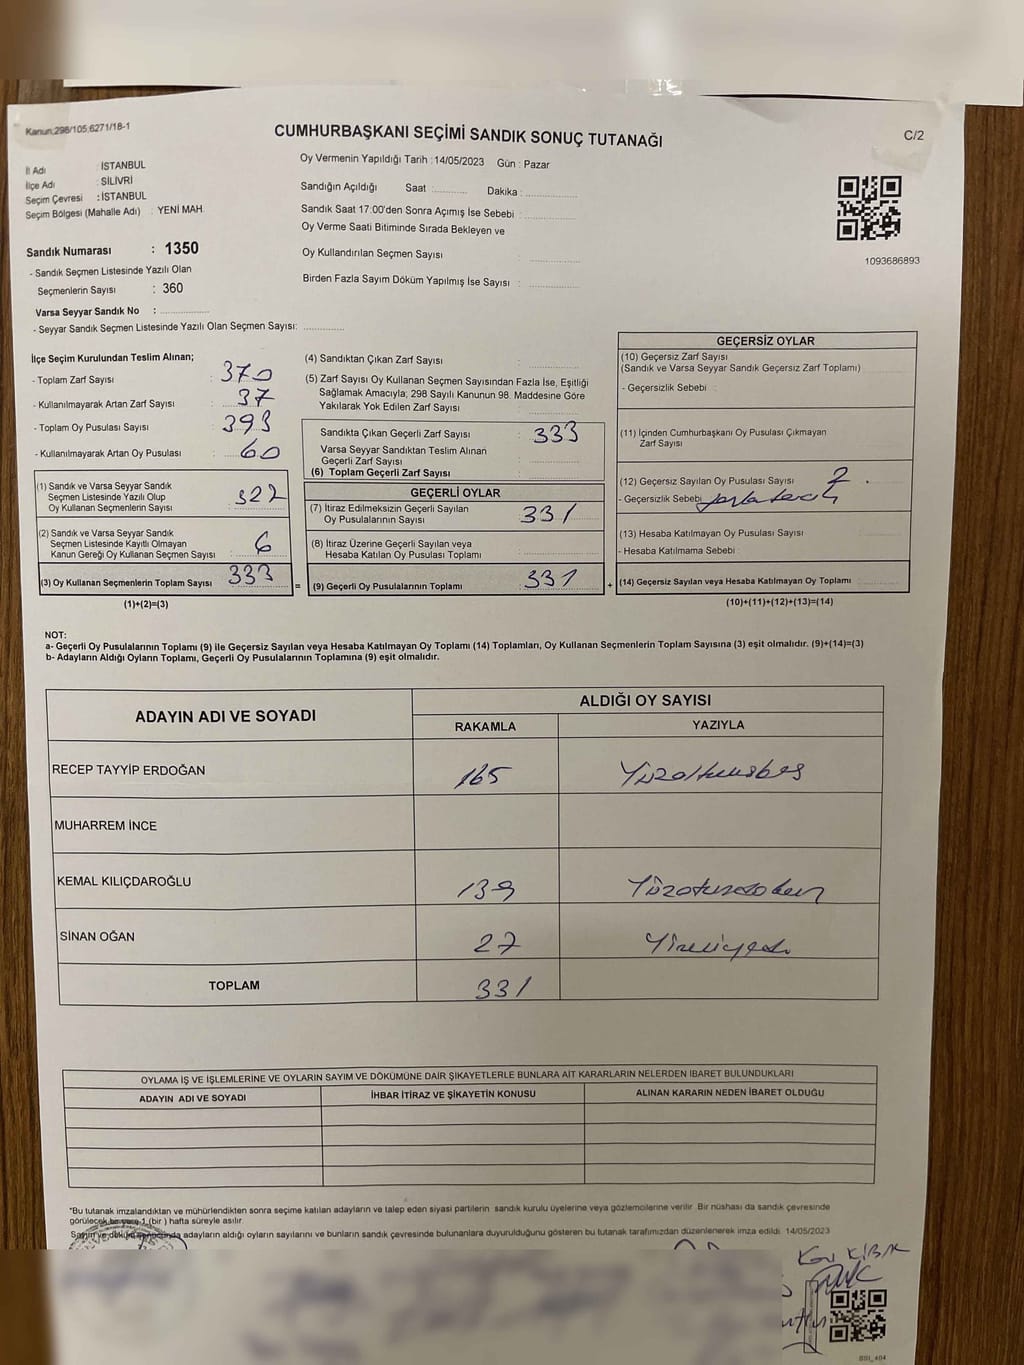 Kanun;298/105;6271/18-1
CUMHURBAŞKANI SEÇİMİ SANDIK SONUÇ TUTANAĞI
C/2
İl Adı : İSTANBUL
İlçe Adı : SİLİVRİ
Seçim Çevresi : İSTANBUL
Seçim Bölgesi (Mahalle Adı) : YENİ MAH.
Oy Vermenin Yapıldığı Tarih : 14/05/2023 Gün : Pazar
Sandığın Açıldığı Saat : Dakika :
Sandık Saat 17:00'den Sonra Açımış İse Sebebi :
Oy Verme Saati Bitiminde Sırada Bekleyen ve
Oy Kullandırılan Seçmen Sayısı
Birden Fazla Sayım Döküm Yapılmış İse Sayısı :
1093686893
Sandık Numarası : 1350
- Sandık Seçmen Listesinde Yazılı Olan
Seçmenlerin Sayısı : 360
Varsa Seyyar Sandık No :
- Seyyar Sandık Seçmen Listesinde Yazılı Olan Seçmen Sayısı:
İlçe Seçim Kurulundan Teslim Alınan;
- Toplam Zarf Sayısı : 370
- Kullanılmayarak Artan Zarf Sayısı : 37
- Toplam Oy Pusulası Sayısı : 393
- Kullanılmayarak Artan Oy Pusulası : 60
(1) Sandık ve Varsa Seyyar Sandık
Seçmen Listesinde Yazılı Olup
Oy Kullanan Seçmenlerin Sayısı : 327
(2) Sandık ve Varsa Seyyar Sandık
Seçmen Listesinde Kayıtlı Olmayan
Kanun Gereği Oy Kullanan Seçmen Sayısı : 6
(3) Oy Kullanan Seçmenlerin Toplam Sayısı : 333
(1)+(2)=(3)
=
(4) Sandıktan Çıkan Zarf Sayısı :
(5) Zarf Sayısı Oy Kullanan Seçmen Sayısından Fazla İse, Eşitliği
Sağlamak Amacıyla; 298 Sayılı Kanunun 98. Maddesine Göre
Yakılarak Yok Edilen Zarf Sayısı :
Sandıkta Çıkan Geçerli Zarf Sayısı : 333
Varsa Seyyar Sandıktan Teslim Alınan
Geçerli Zarf Sayısı :
(6) Toplam Geçerli Zarf Sayısı :
GEÇERLİ OYLAR
(7) İtiraz Edilmeksizin Geçerli Sayılan
Oy Pusulalarının Sayısı : 331
(8) İtiraz Üzerine Geçerli Sayılan veya
Hesaba Katılan Oy Pusulası Toplamı :
(9) Geçerli Oy Pusulalarının Toplamı : 331
+
GEÇERSİZ OYLAR
(10) Geçersiz Zarf Sayısı
(Sandık ve Varsa Seyyar Sandık Geçersiz Zarf Toplamı)
- Geçersizlik Sebebi :
(11) İçinden Cumhurbaşkanı Oy Pusulası Çıkmayan
Zarf Sayısı
(12) Geçersiz Sayılan Oy Pusulası Sayısı : 2
- Geçersizlik Sebebi
(13) Hesaba Katılmayan Oy Pusulası Sayısı :
- Hesaba Katılmama Sebebi :
(14) Geçersiz Sayılan veya Hesaba Katılmayan Oy Toplamı
(10)+(11)+(12)+(13)=(14)
NOT:
a- Geçerli Oy Pusulalarının Toplamı (9) ile Geçersiz Sayılan veya Hesaba Katılmayan Oy Toplamı (14) Toplamları, Oy Kullanan Seçmenlerin Toplam Sayısına (3) eşit olmalıdır. (9)+(14)=(3)
b- Adayların Aldığı Oyların Toplamı, Geçerli Oy Pusulalarının Toplamına (9) eşit olmalıdır.
ADAYIN ADI VE SOYADI
ALDIĞI OY SAYISI
RAKAMLA YAZIYLA
RECEP TAYYİP ERDOĞAN 165 Yüzaltmışbeş
MUHARREM İNCE
KEMAL KILIÇDAROĞLU 139 Yüzotuzdokuz
SİNAN OĞAN 27 Yirmiyedi
TOPLAM 331
OYLAMA İŞ VE İŞLEMLERİNE VE OYLARIN SAYIM VE DÖKÜMÜNE DAİR ŞİKAYETLERLE BUNLARA AİT KARARLARIN NELERDEN İBARET BULUNDUKLARI
ADAYIN ADI VE SOYADI İHBAR İTİRAZ VE ŞİKAYETİN KONUSU ALINAN KARARIN NEDEN İBARET OLDUĞU
*Bu tutanak imzalandıktan ve mühürlendikten sonra seçime katılan adayların ve talep eden siyasi partilerin sandık kurulu üyelerine veya gözlemcilerine verilir. Bir nüshası da sandık çevresinde
görülecek bir yere 1 (bir ) hafta süreyle asılır.
Sayım ve döküm sonucunda adayların aldığı oyların sayılarını ve bunların sandık çevresinde bulunanlara duyurulduğunu gösteren bu tutanak tarafımızdan düzenlenerek imza edildi. 14/05/2023